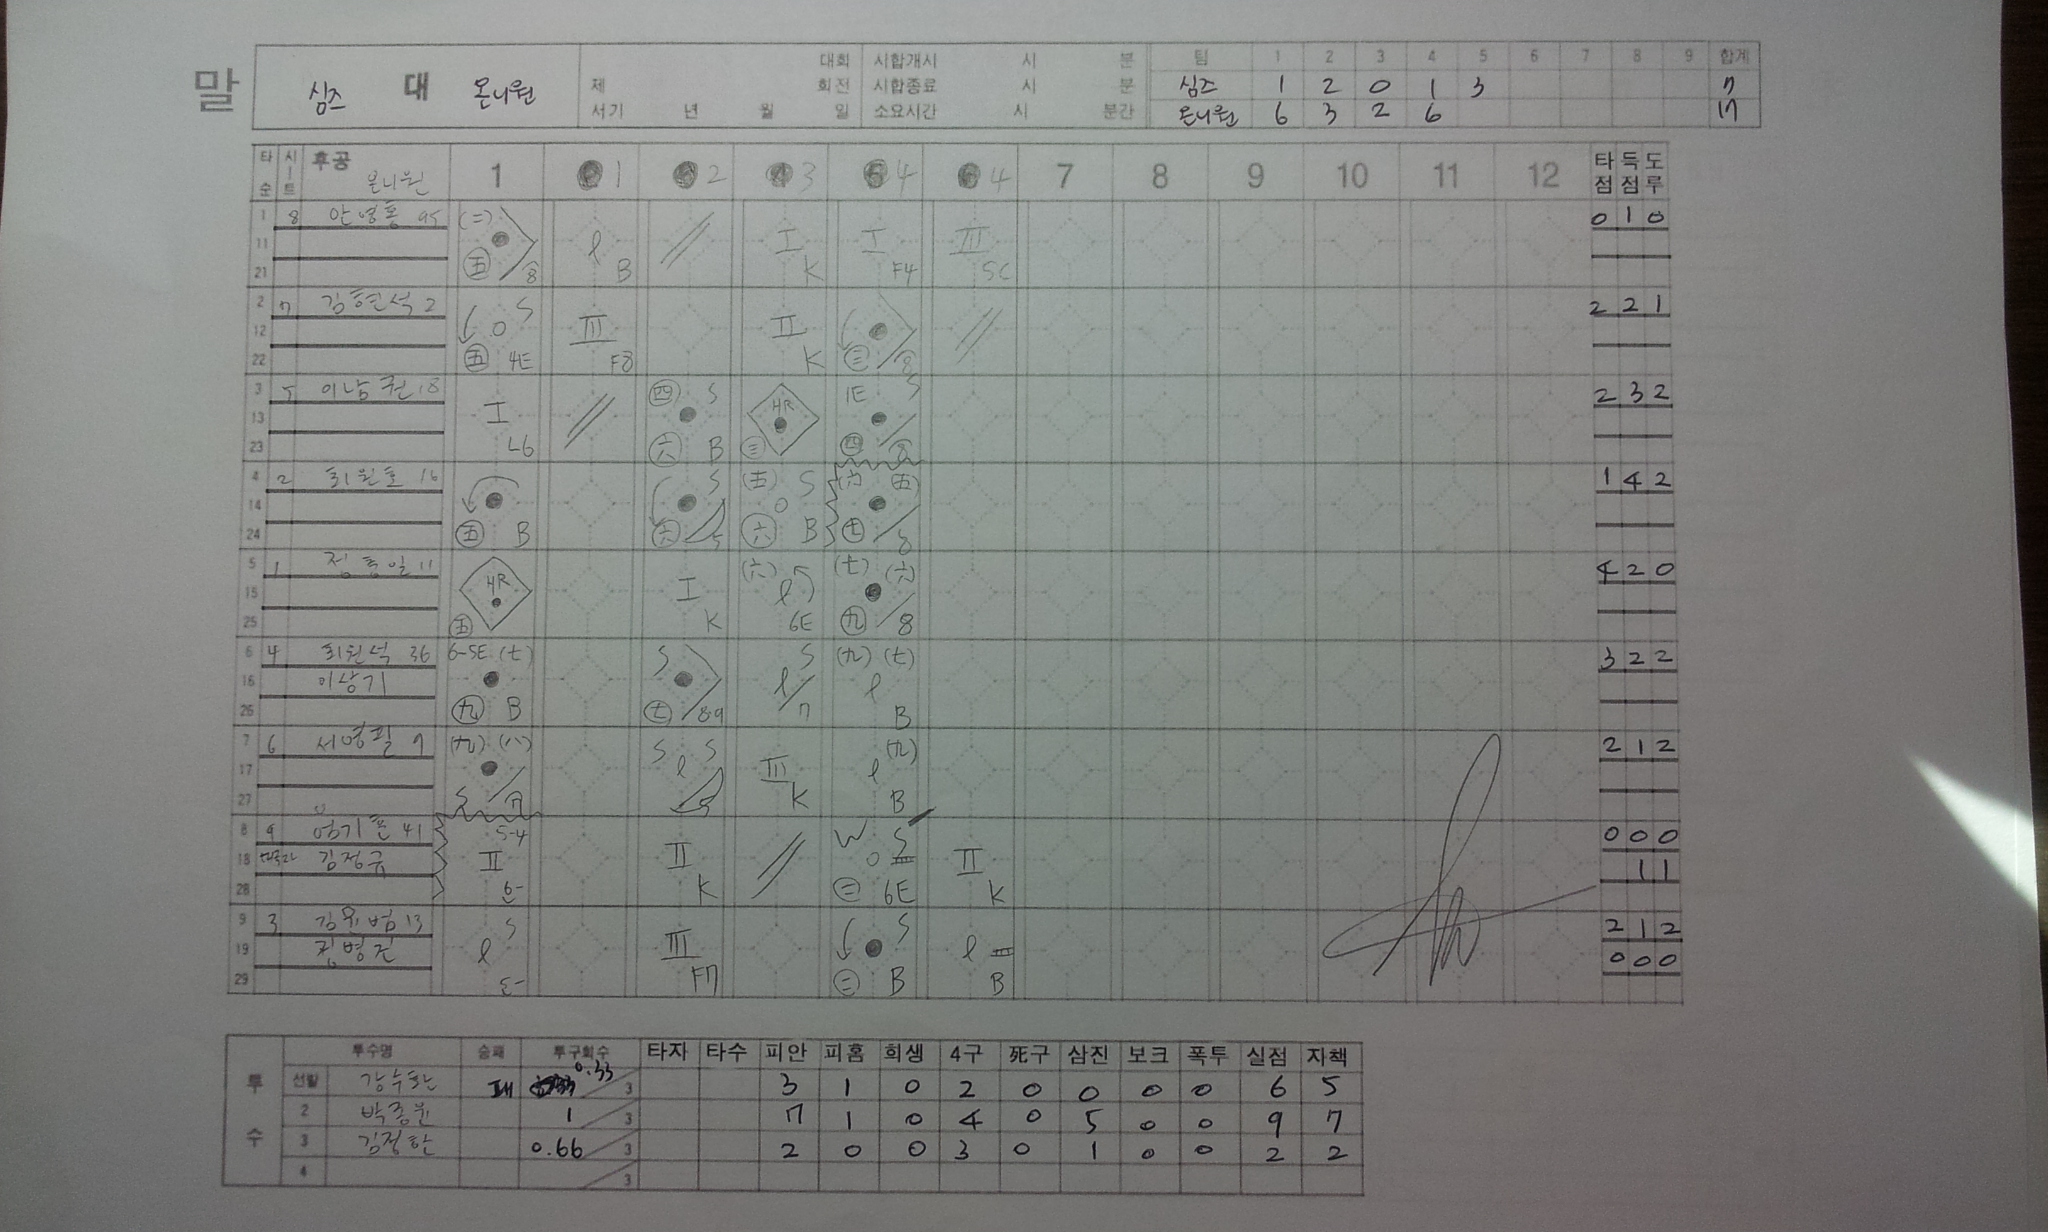 말 심즈 대 온니원
대회 시합개시 시 분
제 회전 시합종료 시 분
서기 년 월 일 소요시간 시 분간
팀 1 2 3 4 5 6 7 8 9 합계
심즈 1 2 0 1 3 7
온니원 6 3 2 6 17
타순 시트 후공 온니원 1 1 2 3 4 4 7 8 9 10 11 12 타점 득점 도루
1 8 안영홍 95 (二) 五 8 l B I K I F4 III SC 0 1 0
11
21
2 7 김현석 2 S 五 4E III F8 II K 三 8 2 2 1
12
22
3 5 이남권 18 I L6 四 S 六 B HR 三 1E S 四 8 2 3 2
13
23
4 2 최원호 16 五 B S 六 5 (五) S 六 B (六) (五) 七 8 1 4 2
14
24
5 1 정홍일 11 HR 五 I K (六) l 6E (七) (六) 九 8 4 2 0
15
25
6 4 최원석 36 6-5E (七) 九 B S 七 8-9 S l 7 (九) (七) l B 3 2 2
16 이상기
26
7 6 서영필 7 (九) (八) S 7 S l S 5 III K (九) l B 2 1 2
17
27
8 9 엄기훈 41 5-4 II 6- II K W S 二 6E II K 0 0 0
18 김정규 1 1
28
9 3 김용범 13 S l E- III F7 S 二 B l B 2 1 2
19 정병진 0 0 0
29
투수 투수명 승패 투구회수 타자 타수 피안 피홈 희생 4구 死구 삼진 보크 폭투 실점 자책
선발 강수환 패 0.33 /3 3 1 0 2 0 0 0 0 6 5
2 박종원 1 /3 7 1 0 4 0 5 0 0 9 7
3 김정한 0.66 /3 2 0 0 3 0 1 0 0 2 2
4 /3